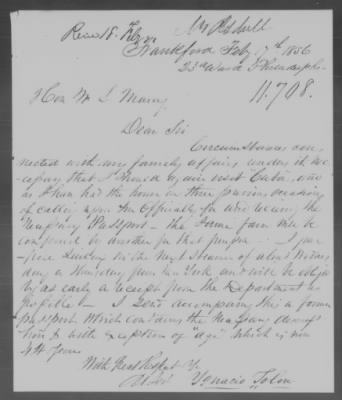 Recd 18. Feby
Frankford Feby 17th 1856
23rd Ward Philadelph.
11.708.
Hon Wm L Marcy
Dear Sir
Circumstances con
nected with my family affairs renders it ne
cessary that I should again visit Cuba, and
as I have had the honor on three previous occasions
of calling upon you Officially for and receiving the
necessary Passport - the same favor will be
conferred by another for that purpose. I pur
pose leaving in the next Steamer of about Wednes
day or Thursday from New York and will be oblig
by as early a receipt from the Department as
possible - I send accompanying this a former
passport which contains the necessary descrip
tion & with exception of "age" which is now
With Great Respect Yr
Ob Svt Ygnacio Tolon